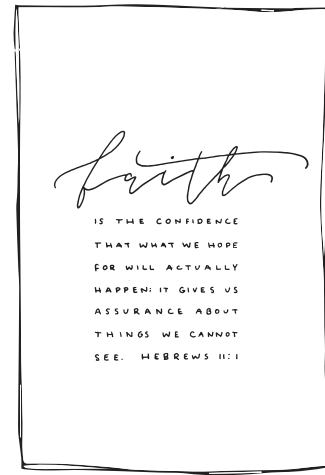 faith
IS THE CONFIDENCE
THAT WHAT WE HOPE
FOR WILL ACTUALLY
HAPPEN; IT GIVES US
ASSURANCE ABOUT
THINGS WE CANNOT
SEE. HEBREWS 11:1